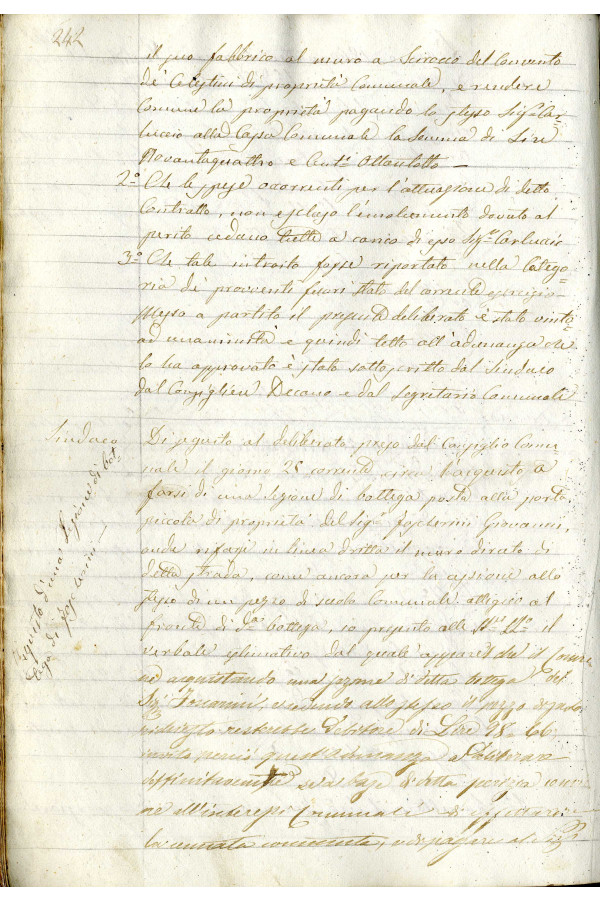 242
il suo fabbrico al muro a Scirocco del Convento
de' Celestini di proprietà Comunale, e rendere
Comune la proprietà pagando lo stesso Sigr Car-
luccio alla Cassa Comunale la somma di Lire
Novantaquattro e Centi Ottantotto —
2.o Che le spese occorrenti per l'attuazione di detto
Contratto, non escluso l'emolumento dovuto al
perito cedano tutte a carico di esso Sigr Carluccio
3.o Che tale introito fosse riportato nella Catego-
ria de' proventi fuori stato del corrente esercizio
Messo a partito il presente deliberato è stato vinto
ad unanimità e quindi letto all'adunanza che
lo ha approvato è stato sottoscritto dal Sindaco
dal Consigliere Decano e dal Segretario Comunale
Sindaco
Acquisto d'una Sezione di bot-
tega di
Di seguito al deliberato preso dal Consiglio Comu-
nale il giorno 25 corrente circa l'acquisto a
farsi di una sezione di bottega posta alla porta
piccola di proprietà del Sigr Giovanni,
onde rifarsi in linea dritta il muro dirato di
detta strada, come ancora per la cessione allo
stesso di un pezzo di suolo Comunale attiguo al
fronte di da bottega, io presento alle il
verbale estimativo dal quale appare che il Comu-
ne acquistando una sezione di detta bottega del
Sigr e cedendo allo stesso il pezzo di suolo
richiesto resterebbe debitore di Lire 98. 66
invito perciò quest'adunanza a deliberare
diffinitivamente sulla base di detta perizia
all'interesse Comunale di
la cennata e di pagare al Sigr